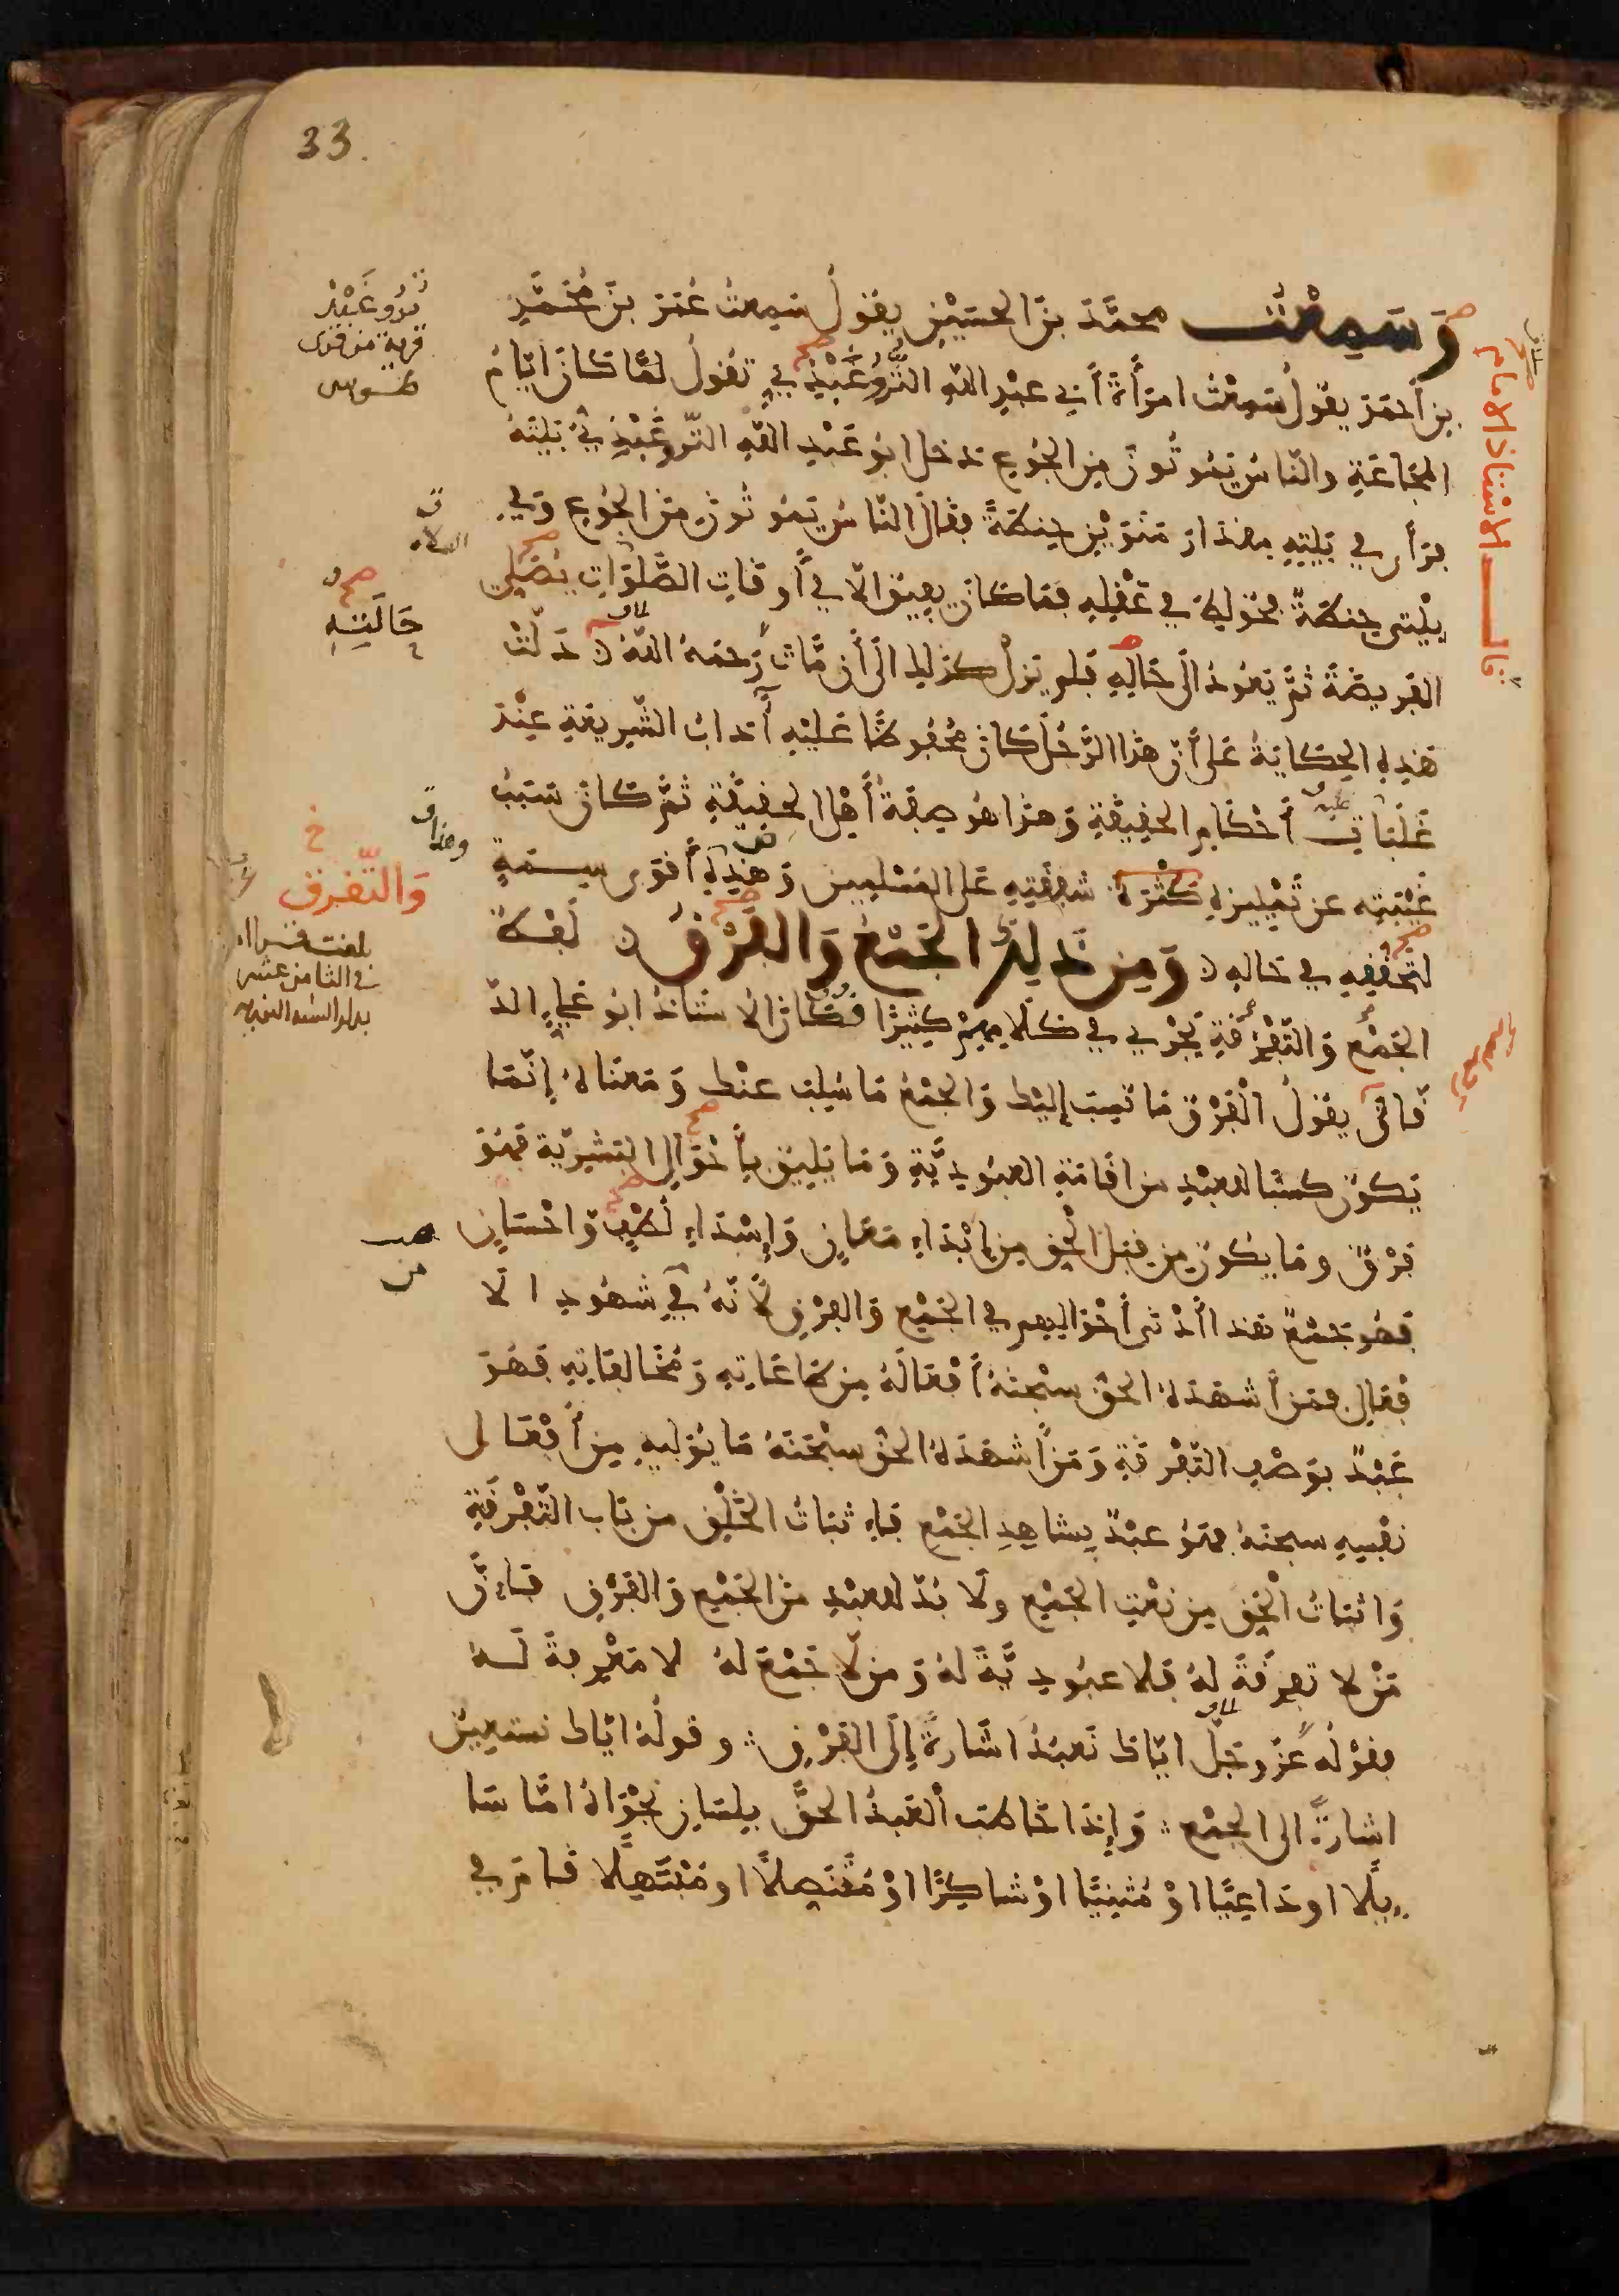 33.
وَسَمِعْتُ محمَّدَ بنَ الحسَيْنِ يقولُ سَمِعتُ عُمَرَ بنَ مُحَمَّدِ
بنِ أحمَدَ يقولُ سَمِعْتُ امرَأَةَ أَبِي عبْدِ اللهِ التُّرُوغَبْذِيِّ تَقُولُ لمَّا كانَ ايّامُ
المجَاعَةِ والنّاسُ يَمُوتُونَ مِنَ الجُوعِ دخل ابُو عَبْدِ اللهِ التّروغَبْذِيُّ بَيْتَهُ
فرَأى في بَيْتِهِ مقدَارَ مَنَوَيْنِ حِنطَةً فقالَ النّاسُ يَمُوتُونَ مِنَ الجُوعِ وَفي
بيْتي حِنطَةٌ فخُولِطَ في عَقْلِهِ فمَا كانَ يفِيقُ الّا في أَوقَاتِ الصَّلَوَاتِ يُصَلّي
الفَرِيضَةَ ثُمَّ يَعُودُ الَى حَالِهِ فلم يَزلْ كذلِكَ الَى أن مَّاتَ رَحِمَهُ اللهُ دَلَّتْ
هَذِهِ الحِكَايَةُ عَلى أَنّ هذا الرَّجُلَ كانَ محْفُوظًا عَلَيْهِ آدَابُ الشَّرِيعَةِ عِنْدَ
غَلَبَاتِ أحْكَامِ الحَقِيقَةِ وَهذا هُوَ صِفَةُ أَهْلِ الحقِيقَةِ ثُمَّ كانَ سَبَبُ
غَيْبَتِهِ عن تَمْيِيزِهِ كَثْرَةُ شفَقَتِهِ عَلى المُسْلِمِينَ وَهَذِهِ أَقوَى سِمَةٍ
لتَحَقُّقِهِ في حَالِهِ وَمِن ذَلِكَ الجَمْعُ وَالفَرْقُ لَفْظُ
الجَمْعِ وَالتَّفْرِقَةِ يَجْرِي في كَلَامِهِمْ كَثِيرًا فكَانَ الاسْتَاذُ ابُو عَلِيٍّ الدّ
قّاقُ يقُولُ الْفَرْقُ مَا نُسِبَ إِلَيْكَ وَالجَمْعُ مَا سُلِبَ عنْكَ وَمَعنَاهُ إنّمَا
يَكونُ كسْبًا للعَبْدِ من اقَامَةِ العبُودِيَّةِ وَمَا يَلِيقُ بأَحْوَالِ البَشَرِيّةِ فهُوَ
فَرْقٌ وما يكُونُ مِن قِبَلِ الْحقِ مِن إبْدَاءِ مَعَانٍ وَإِسْدَاءِ لُطْفٍ وَاحْسَانٍ
فهُو جَمْعٌ هَذا أَدْنَى أَحْوَالِهِم في الجَمْعِ وَالفَرْقِ لأَنّهُ في شهُودِ الا
فْعَالِ فمَن أَشهَدَهُ الحَقُّ سبْحنَهُ أَفْعَالَهُ مِن طَاعَاتِهِ وَمُخَالفَاتِهِ فهُوَ
عَبْدٌ بوَصْفِ التَّفْرِقَةِ وَمَن أَشهَدَهُ الحقُّ سبْحَنَهُ مَا يُولِيهِ مِن أَفْعَالِ
نفْسِهِ سبحنَهُ فهُوَ عبْدٌ بِشاهِدِ الجَمْعِ فإِثبَاتُ الخَلْقِ من بَابِ التَّفْرِقَةِ
وَاثبَاتُ الْحَقِ مِن نَعْتِ الجَمْعِ ولا بُدّ للعَبْدِ مِنَ الجَمْعِ وَالفَرْقِ فإِنَّ
مَنْ لا تَفرِقَةَ لَهُ فلا عبُودِيَّةَ لَهُ وَمَن لّا جَمْعَ لَهُ لا مَعْرِفةَ لَهُ
فقوْلُه عَزَّ وجَلَّ ايّاكَ نَعبُدُ اشَارَةٌ إلَى الفَرْقِ وقولُهُ ايّاكَ نستعِينُ
اشَارَةٌ الى الجَمْعِ وَإِذَا خَاطَبَ الْعَبْدُ الحقَّ بِلسَانِ نجْوَاهُ امّا سَا
ئِلًا او دَاعِيًا اوْ مُثْنِيًا اوْ شاكِرًا اوْ مُتَنَصِّلًا او مُبْتَهِلًا قامَ في
تروغَبْذ
قرية من قرى
طوس
حَالَتِهِ
وَالتَّفرِقَة
خ
قال الاستاذ الامام